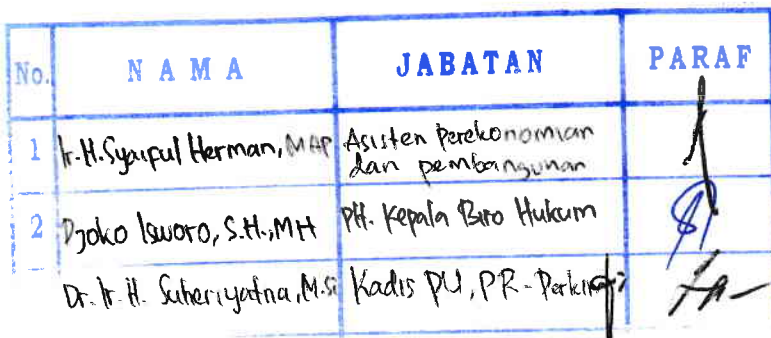 No. N A M A JABATAN PARAF
1 Ir. H. Syaiful Herman, MAP Asisten Perekonomian
dan pembangunan
2 Djoko Isworo, S.H., MH Plt. Kepala Biro Hukum
Dr. Ir. H. Suheriyatna, M.Si Kadis PU, PR-Perkim